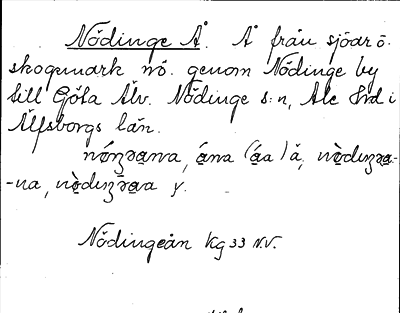 Nödinge Å. Å från sjöar ö.
skogsmark nö. genom Nödinge by
till Göta Älv. Nödinge s:n, Ale hrd i
Älfsborgs län.
ana (áa) ä,
-na, y.
Nödingeån Kg 33 N.V.